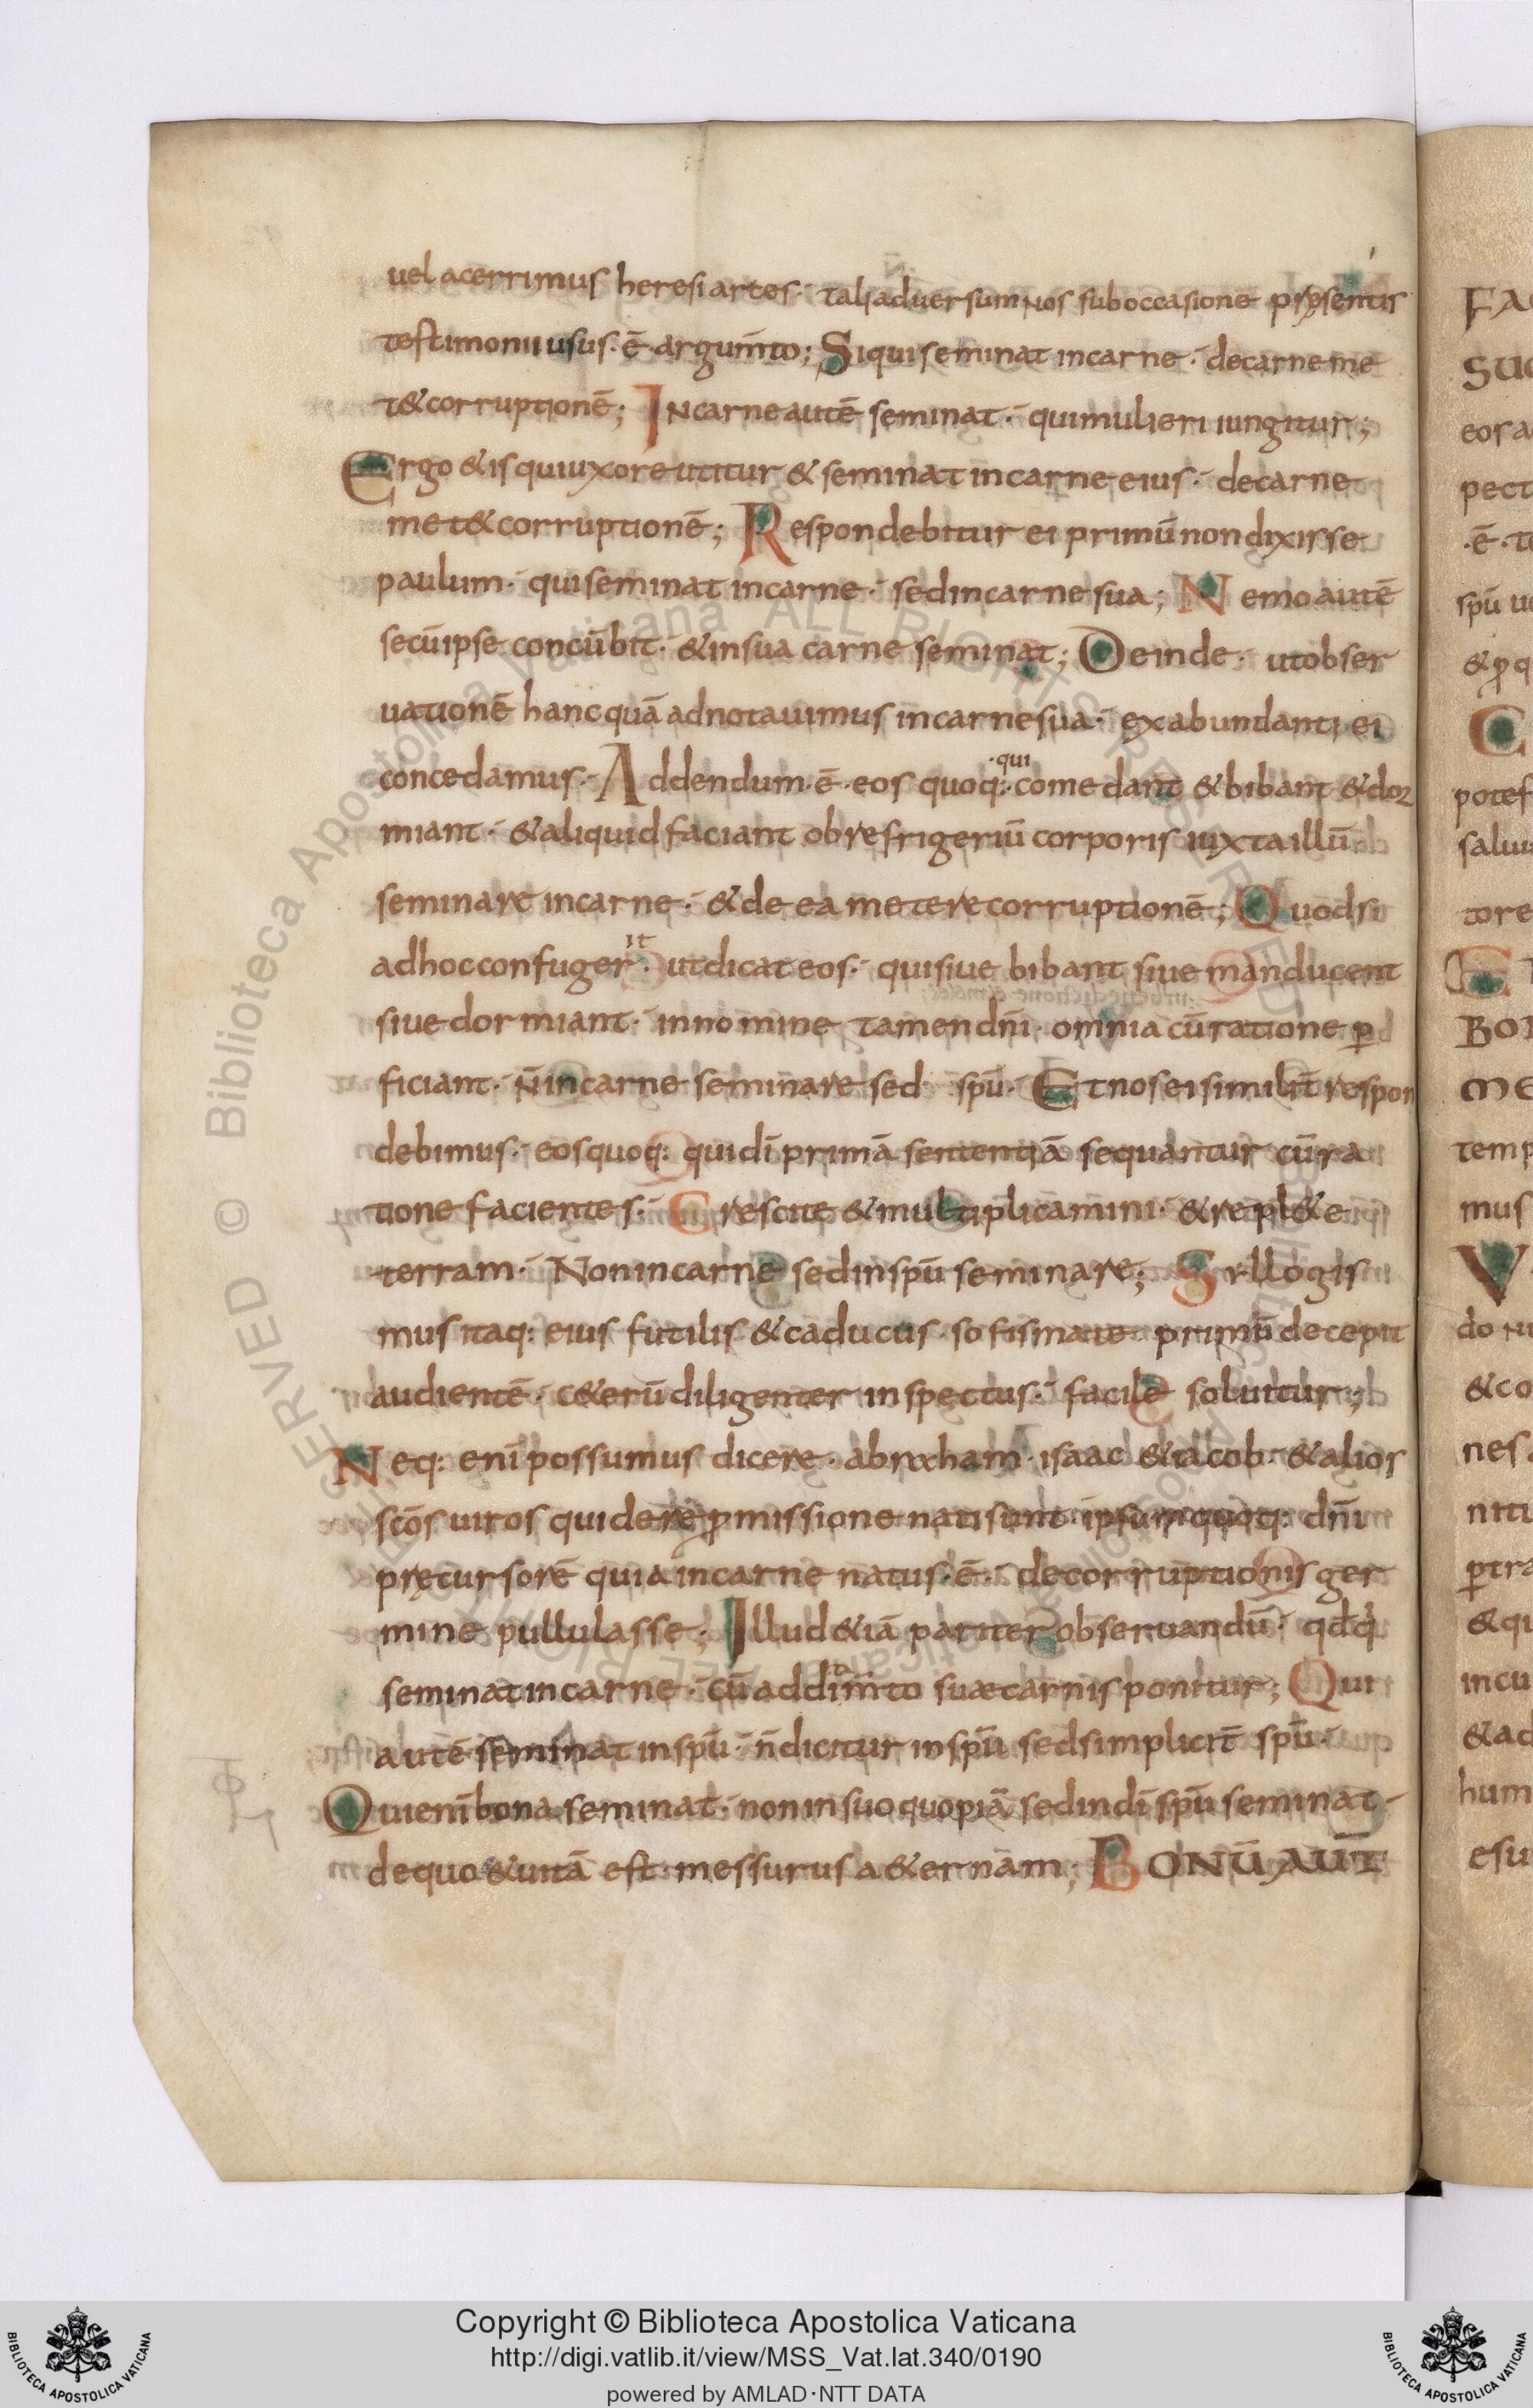 uel acerrimus heresiartes· tali aduersum nos sub occasione presentis
testimonii usus·ē·argum̄to; Si qui seminat in carne· de carne me
t& corruptionē; In carne autē seminat· qui mulieri iungitur;
Ergo & is qui uxore utitur & seminat in carne eius· de carne
met& corruptionē; Respondebitur ei primū non dixisse
paulum· qui seminat in carne· sed in carne sua; Nemo autē
secū ipse concūbit· & in sua carne seminat; Deinde· ut obser
uationē hanc quā adnotauimus in carne sua· ex abundanti ei
concedamus· Addendum·ē·eos quoq:·
·qui
comedant & bibant & dor
miant· & aliquid faciant ob refrigeriū corporis iuxta illū
seminare in carne· & de ea metere corruptionē; Quod si
ad hoc confuger
it
· ut dicat eos· qui siue bibant siue manducent
siue dormiant· in nomine tamen dn̄i· omnia cū ratione p̄
ficiant· n̄ in carne seminare sed spū· Et nos ei similit̄ respon
debimus· eos quoq: qui dī primā sententiā sequantur cū ra
tione facientes· Crescite & multiplicamini· & repl&e
terram· Non in carne sed in spū seminare; Syllogis
mus itaq: eius futilis & caducus· sofismate primū decepit
audientē· c&erū diligenter inspectus· facile soluitur;
Neq: enī possumus dicere· abraham· isaac & iacob· & alios
scōs uiros qui de repromissione nati sunt· ipsum quoq: dn̄i
pręcursorē quia in carne natus·ē· de corruptionis ger
mine pullulasse; Illud &iā pariter obseruandū· qdq
seminat in carne· cū addim̄to suæ carnis ponitur; Qui
autē seminat in spū· n̄ dicitur in spū sed simplicit̄ spū·
Qui enī bona seminat· non in suo quopiā sed in dī spū seminat·
de quo & uitā est messurus a&ernam; BONŪ AUT̄
FA
SUO
eora
pect
·ē·
spū
&
C
potes
salu
tore
BO
ME
temp
mus
V
do
& co
nes
niti
& qu
incu
& ad
hum
esu
Copyright © Biblioteca Apostolica Vaticana
http://digi.vatlib.it/view/MSS_Vat.lat.340/0190
powered by AMLAD·NTT DATA
BIBLIOTECA APOSTOLICA VATICANA
BIBLIOTECA APOSTOLICA VATICANA